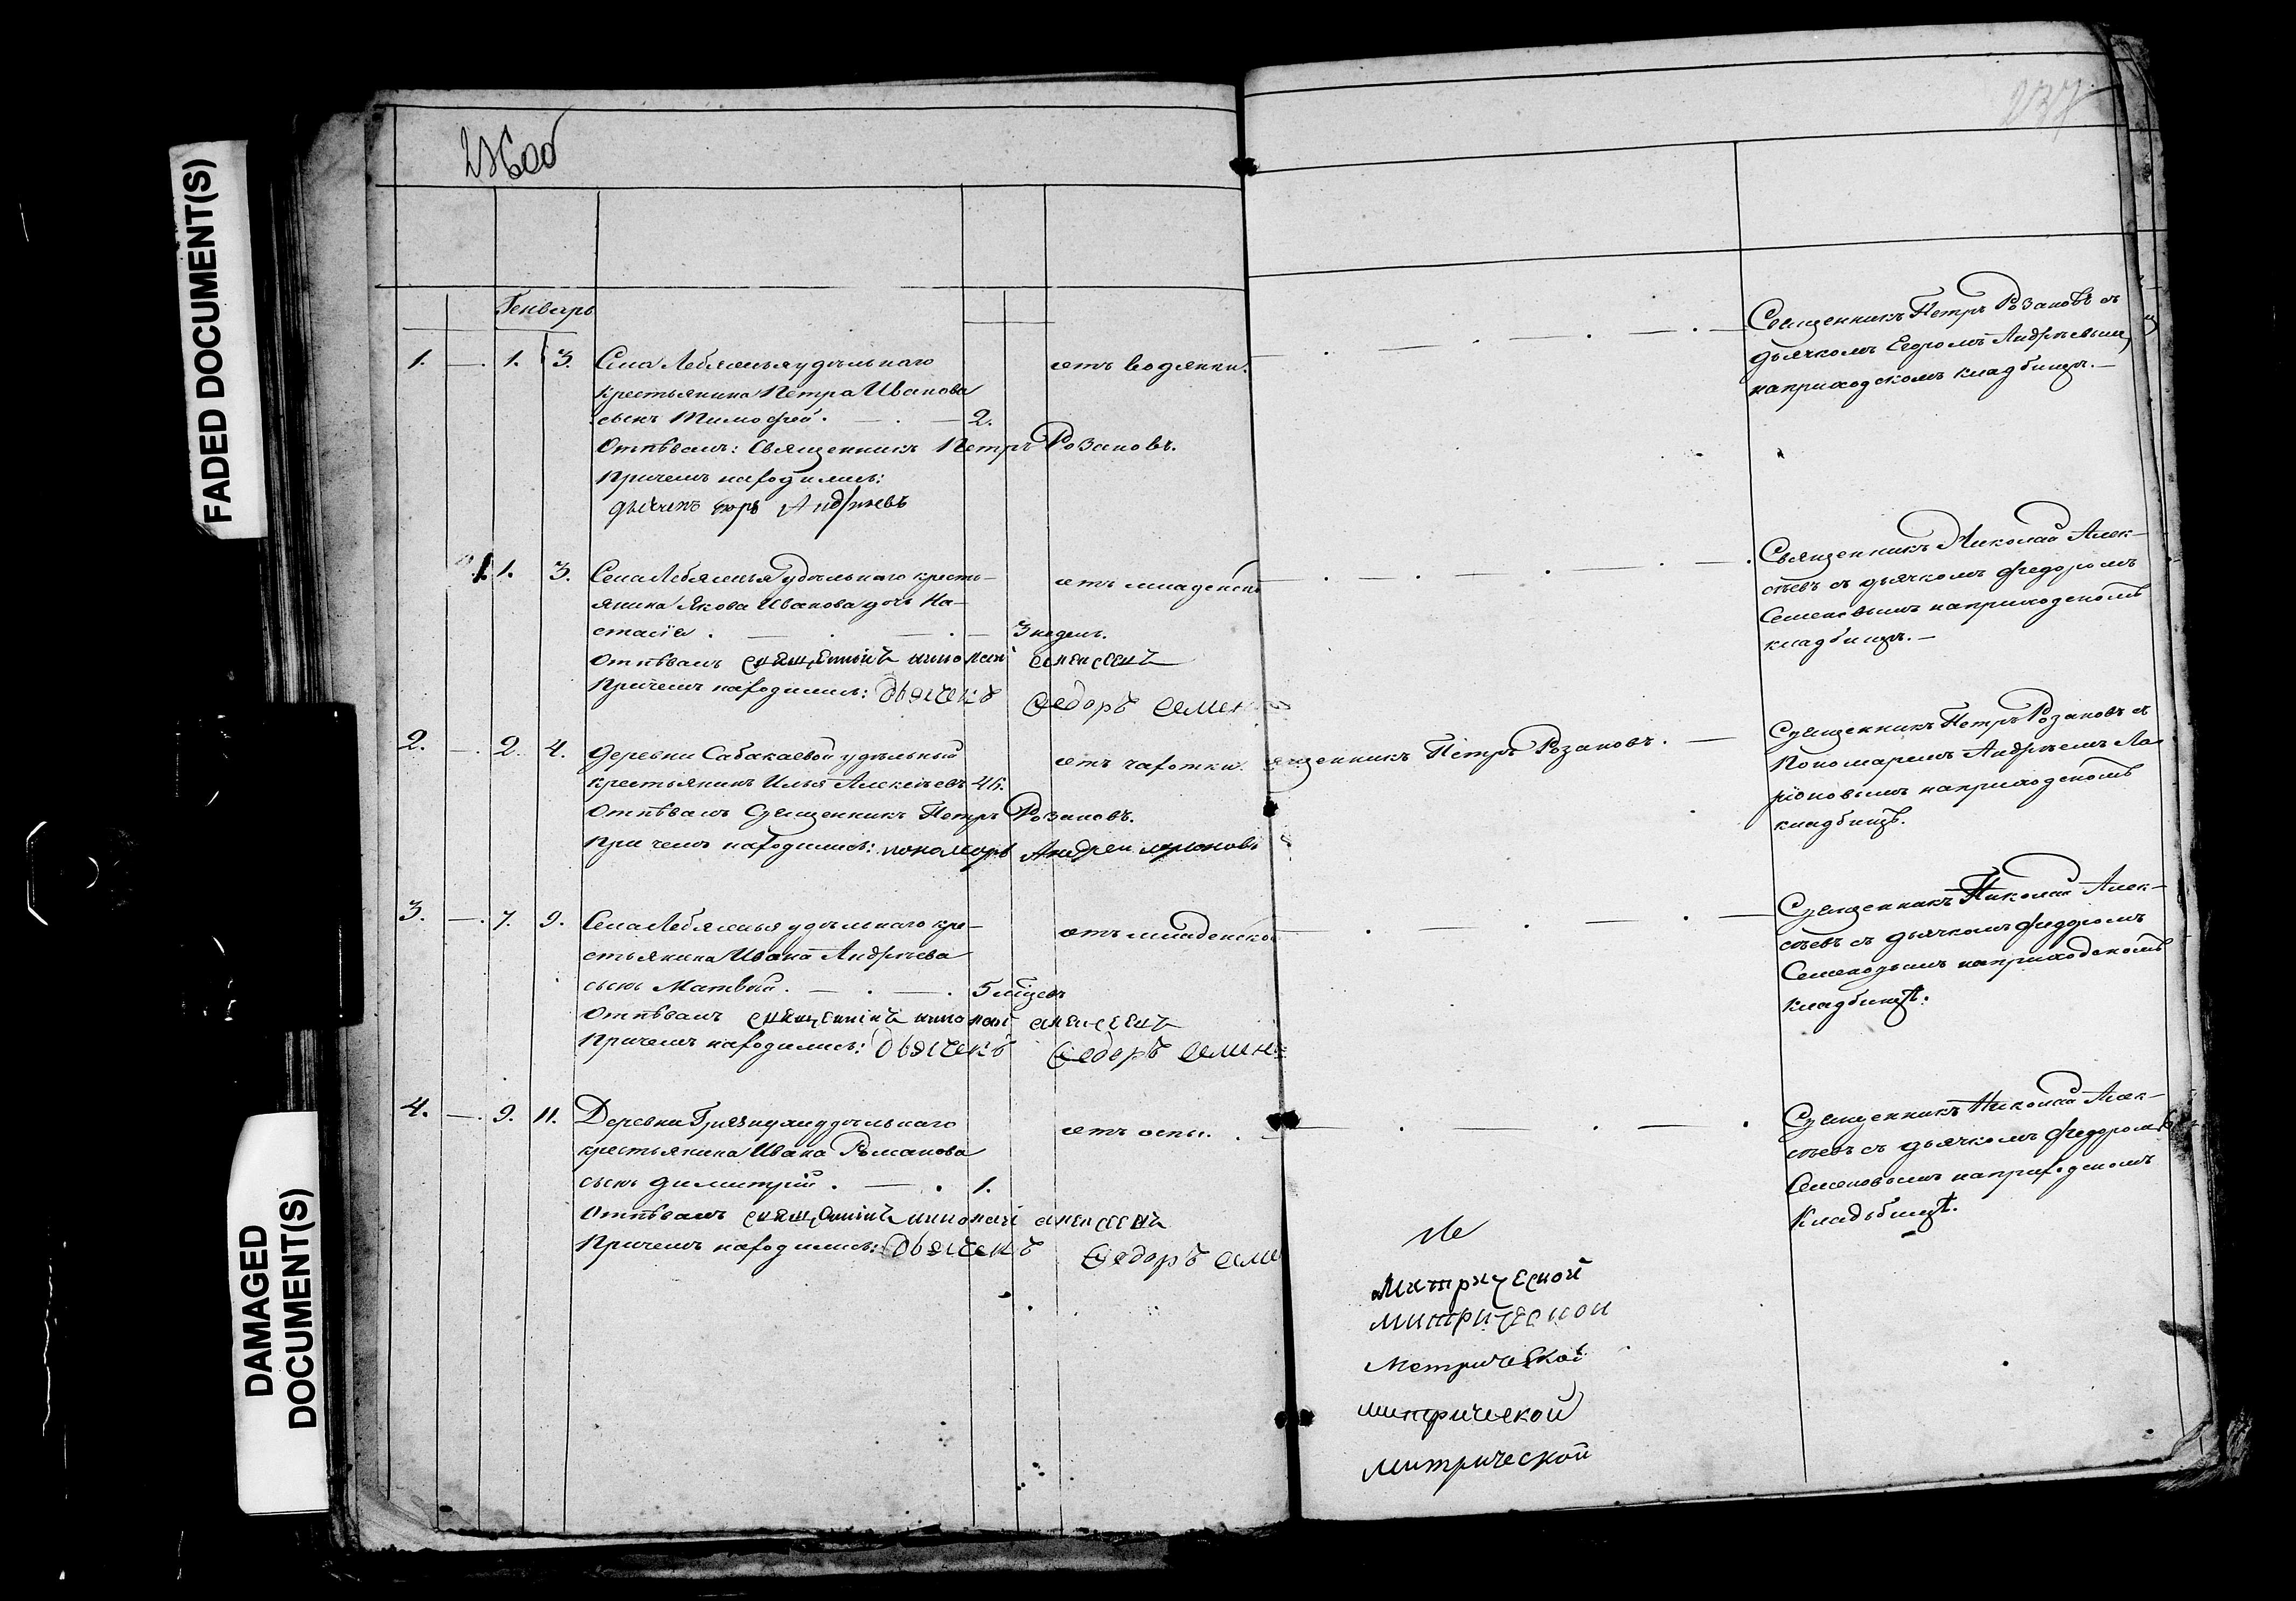 FADED DOCUMENT(S)
DAMAGED DOCUMENT(S)
236об
237
Генварь
1. — 1. 3. Села Лебяжья удѣльнаго
крестьянина Петра Иванова
сынъ Тимофей. — 2. отъ водянки.
Отпѣвалъ: Священникъ Петръ Розановъ.
Причемъ находились:
дьячекъ Егоръ Андреевъ
Священникъ Петръ Розановъ съ
дьячкомъ Егоромъ Андрѣевым
наприходскомъ кладбищѣ. —
1. 1. 3. Села Лебяжья удѣльнаго кресть-
янина Якова Иванова дочь На-
стасiя. — 3 недел. отъ младенск
Отпѣвалъ священникъ николай алексеевъ
Причемъ находились: Дьячекъ Федоръ Семен
Священникъ Николай Алек-
сѣевъ съ дьячкомъ Федоромъ
Семеновымъ наприходскомъ
кладбищѣ. —
2. — 2. 4. Деревни Сабакаевой удѣльный
крестьянинъ Илья Алексѣевъ 46. отъ чахотки.
Отпѣвалъ Священникъ Петръ Розановъ.
При чемъ находились: пономарь Андреи ларионовъ
ященникъ Петръ Розановъ. —
Священникъ Петръ Розановъ съ
Пономаремъ Андрѣемъ Ла-
рiоновымъ наприходскомъ
кладбищѣ.
3. — 7. 9. Села Лебяжья удѣльнаго кре-
стьянина Ивана Андрѣева
сынъ Матвѣй. — 5 мѣцевъ отъ младенско
Отпѣвалъ священникъ николай алексеевъ
Причемъ находились: Дьячекъ Федоръ Семен
Священникъ Николай Алек-
сѣевъ съ дьячкомъ Федоромъ
Семеновымъ наприходскомъ
кладбищѣ.
4. — 9. 11. Деревни удѣльнаго
крестьянина Ивана Романова
сынъ Димитрiй. — 1. отъ оспы.
Отпѣвалъ священникъ николай алексеевъ
Причемъ находились: Дьячекъ Федоръ Семе
Священникъ Николай Алек-
сѣевъ съ дьячкомъ Федоромъ
Семеновымъ наприходскомъ
Кладьбищѣ.
Ме
Митрической
митрической
Метрической
митрической
митрической